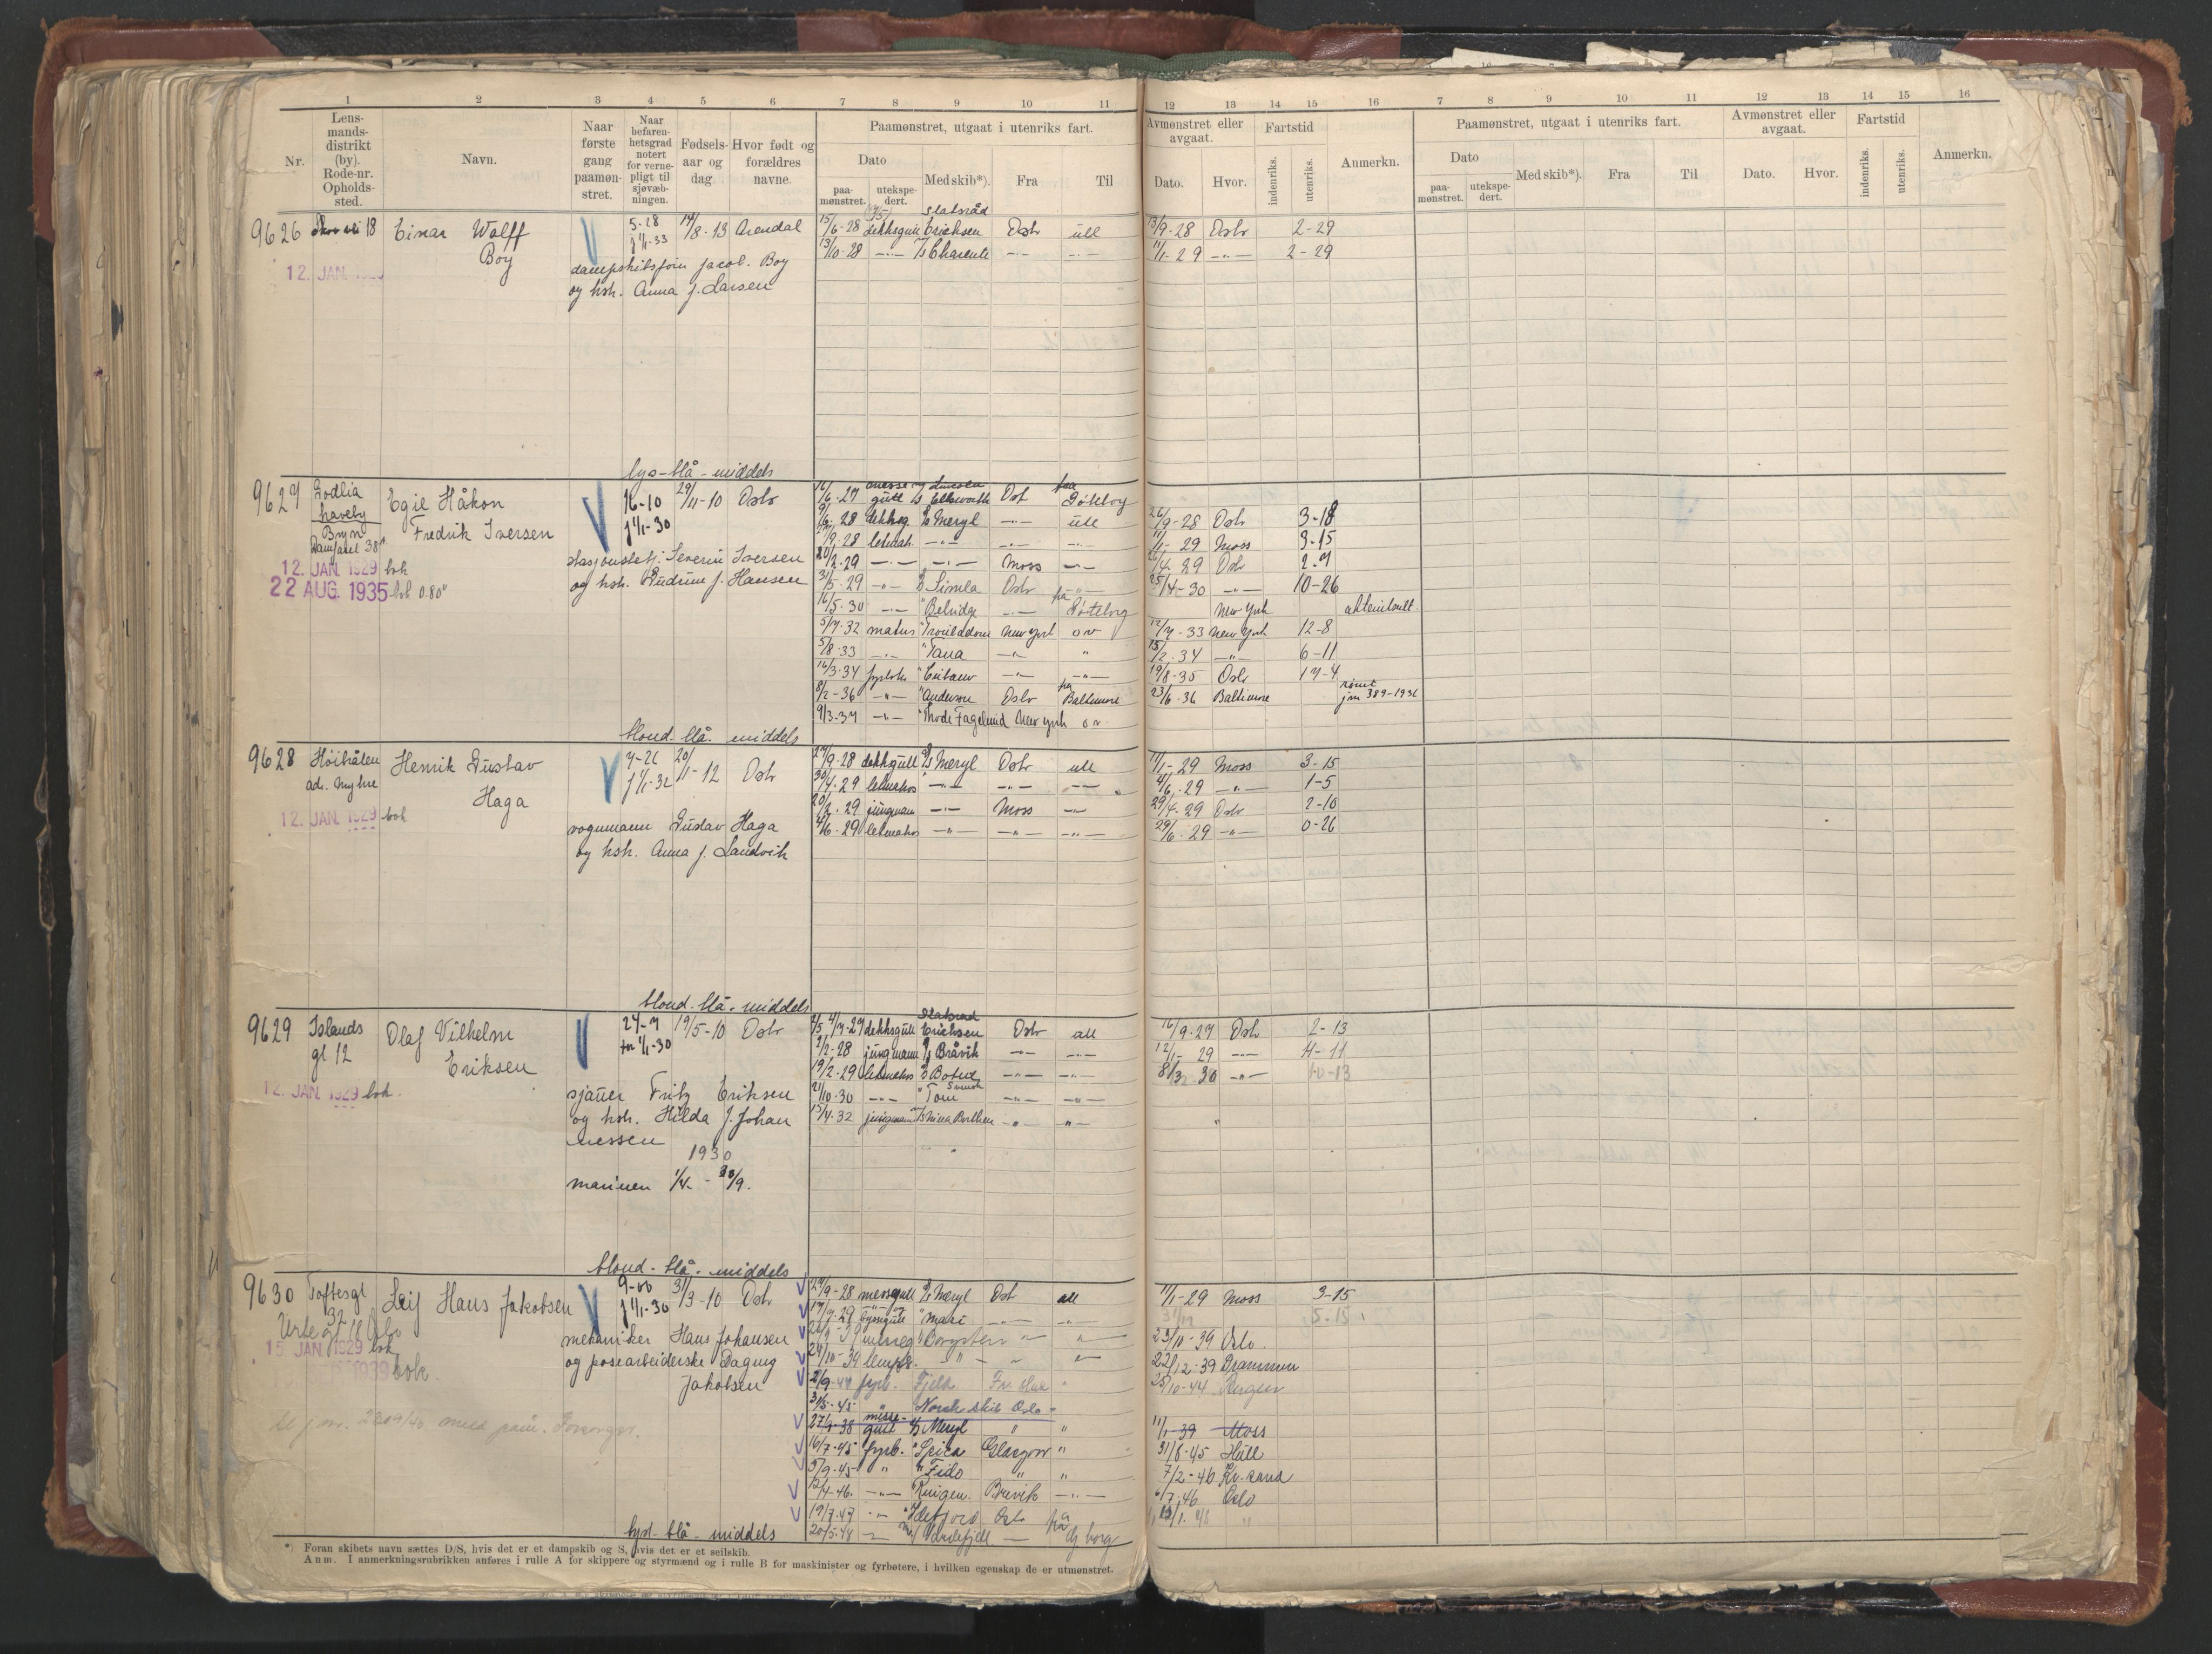 1 2 3 4 5 6 7 8 9 10 11 12 13 14 15 16 7 8 9 10 11 12 13 14 15 16
Nr.
Lens-
mands-
distrikt
(by).
Rode-nr.
Opholds-
sted.
Navn.
Naar
første
gang
paamøn-
stret.
Naar
befaren-
hetsgrad
notert
for verne-
pligt til
sjøvæb-
ningen.
Fødsels-
aar og
dag
Hvor født og
forældres
navne.
Paamønstret, utgaat i utenriks fart.
Dato
paa-
mønstret.
utekspe-
dert.
Med skib*).
Fra
Til
Avmønstret eller
avgaat.
Dato.
Hvor.
Fartstid
indenriks.
utenriks.
Anmerkn.
Paamønstret, utgaat i utenriks fart.
Dato
paa-
mønstret.
utekspe-
dert.
Med skib*).
Fra
Til
Avmønstret eller
avgaat.
Dato.
Hvor.
Fartstid
indenriks.
utenriks.
Anmerkn.
9626 18 Einar Wolff
Boy
5-28
1/1-33
14/8-13 Arendal
12. JAN.
dampskibsfører Jacob Boy
og hsh. Anna f. Larsen
Statsråd
15/6-28 dekksgutt Erichsen Oslo utl 13/9-28 Oslo 2-29
13/10-28 -"- Charente -"- -"- 11/1-29 -"- 2-29
lys-blå-middels
9627 Godlia
haveby
Bryn
Egil Håkon
Fredrik Iversen
16-10
f 1/1-30
29/11-10 Oslo
12. JAN. 1929 bok
22 AUG. 1935 bok 0.80"
Severin Iversen
og hsh. Gudrun f. Hansen
16/6-27 messegutt Ellsworth Oslo fra Göteborg
9/6-28 dekksg. Meryl -"- utl 26/9-28 Oslo 3-18
27/9-28 letmatr. -"- -"- 11/1-29 Moss 3-15
20/2-29 -"- -"- Moss -"- 26/4-29 Oslo 2-7
31/5-29 -"- Simla Oslo -"- 25/4-30 -"- 10-26
16/5-30 -"- Belridge -"- fra Göteborg New York
5/7-32 matros New York o.v 12/7-33 New York 12-8
5/8-33 -"- "Tana -"- " 15/2-34 -"- 6-11
16/3-34 -"- -"- 19/8-35 Oslo 17-4
8/2-36 -"- "Anderson Oslo fra Baltimore 23/6-36 Baltimore rømt jnr 389-1936
9/3-37 -"- "Thode Fagelund New York o.v.
blond. blå. middels
9628 Høibråten
adr. Myhre
Henrik Gustav
Haga
7-26
f 1/1-32
20/11-12 Oslo
12. JAN. 1929 bok
vognmann Gustav Haga
og hsh. Anna f. Sandvik
27/9-28 dekksgutt Meryl Oslo utl 11/1-29 Moss 3-15
30/4-29 letmatros -"- -"- -"- 4/6-29 -"- 1-5
20/2-29 jungmann -"- Moss -"- 29/4-29 Oslo 2-10
4/6-29 letmatros -"- -"- -"- 29/6-29 -"- 0-26
blond. blå. middels
9629 Islands
gt 12
Olaf Vilhelm
Eriksen
24-7
for 1/1-30
19/5-10 Oslo
12. JAN. 1929 bok.
sjauer Fritz Eriksen
og hsh. Hilda f. Johan
nessen
1930
marinen 1/4 - 30/9.
Statsråd
4/7-27 dekksgutt Erichsen Oslo utl 16/9-27 Oslo 2-13
2/2-28 jungmann Bråvik -"- -"- 12/1-29 -"- 11-11
19/2-29 letmatros -"- -"- 8/3-30 -"- 10-13
21/10-30 -"- "Tom -"- -"-
15/4-32 jungmann Nina Borthen -"- "-
blond-blå-middels
9630 Toftesgt
32
Urtegt 18 Oslo
Leif Hans Jakobsen
9-00
f 1/1-30
31/3-10 Oslo
15 JAN. 1929 bok
1939 bok.
mekaniker Hans Johansen
og posearbeiderske Dagny
Jakobsen
27/9-28 messegutt Meryl Oslo utl 11/1-29 Moss 3-15
17/7-29 Fyrgutt "Mari -"- -"- 5-15
"Borgsten 23/11-39 Oslo.
24/10-39 lemp. 22/12-39 Drammen
2/9-44 fyrb. Fjeld 25/10-44 Bergen
31/5-45 " Norsk skib Oslo
27/9-38 messegutt Meryl " " 11/1-39 Moss
16/7-45 fyrb. "Spica Glasgow " 31/8-45 Hull
5/9-45 " "Fido " " 7/2-46 Kr.sand
12/4-46. -"- Ringen Brevik -"- 6/7-46 Oslo
19/7-47 -"- "Idefjord Oslo fra
20/5-48 Vardefjell Gborg
lys-blå-middels
*) Foran skibets navn sættes D/S, hvis det er et dampskib og S, hvis det er et seilskib.
Anm. I anmerkningsrubrikken anføres i rulle A for skippere og styrmænd og i rulle B for maskinister og fyrbøtere, i hvilken egenskap de er utmønstret.